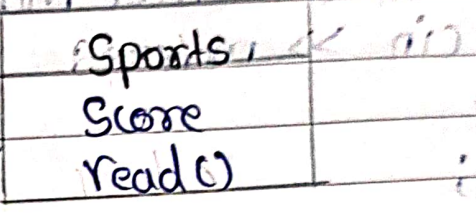 Sports
Score
read()